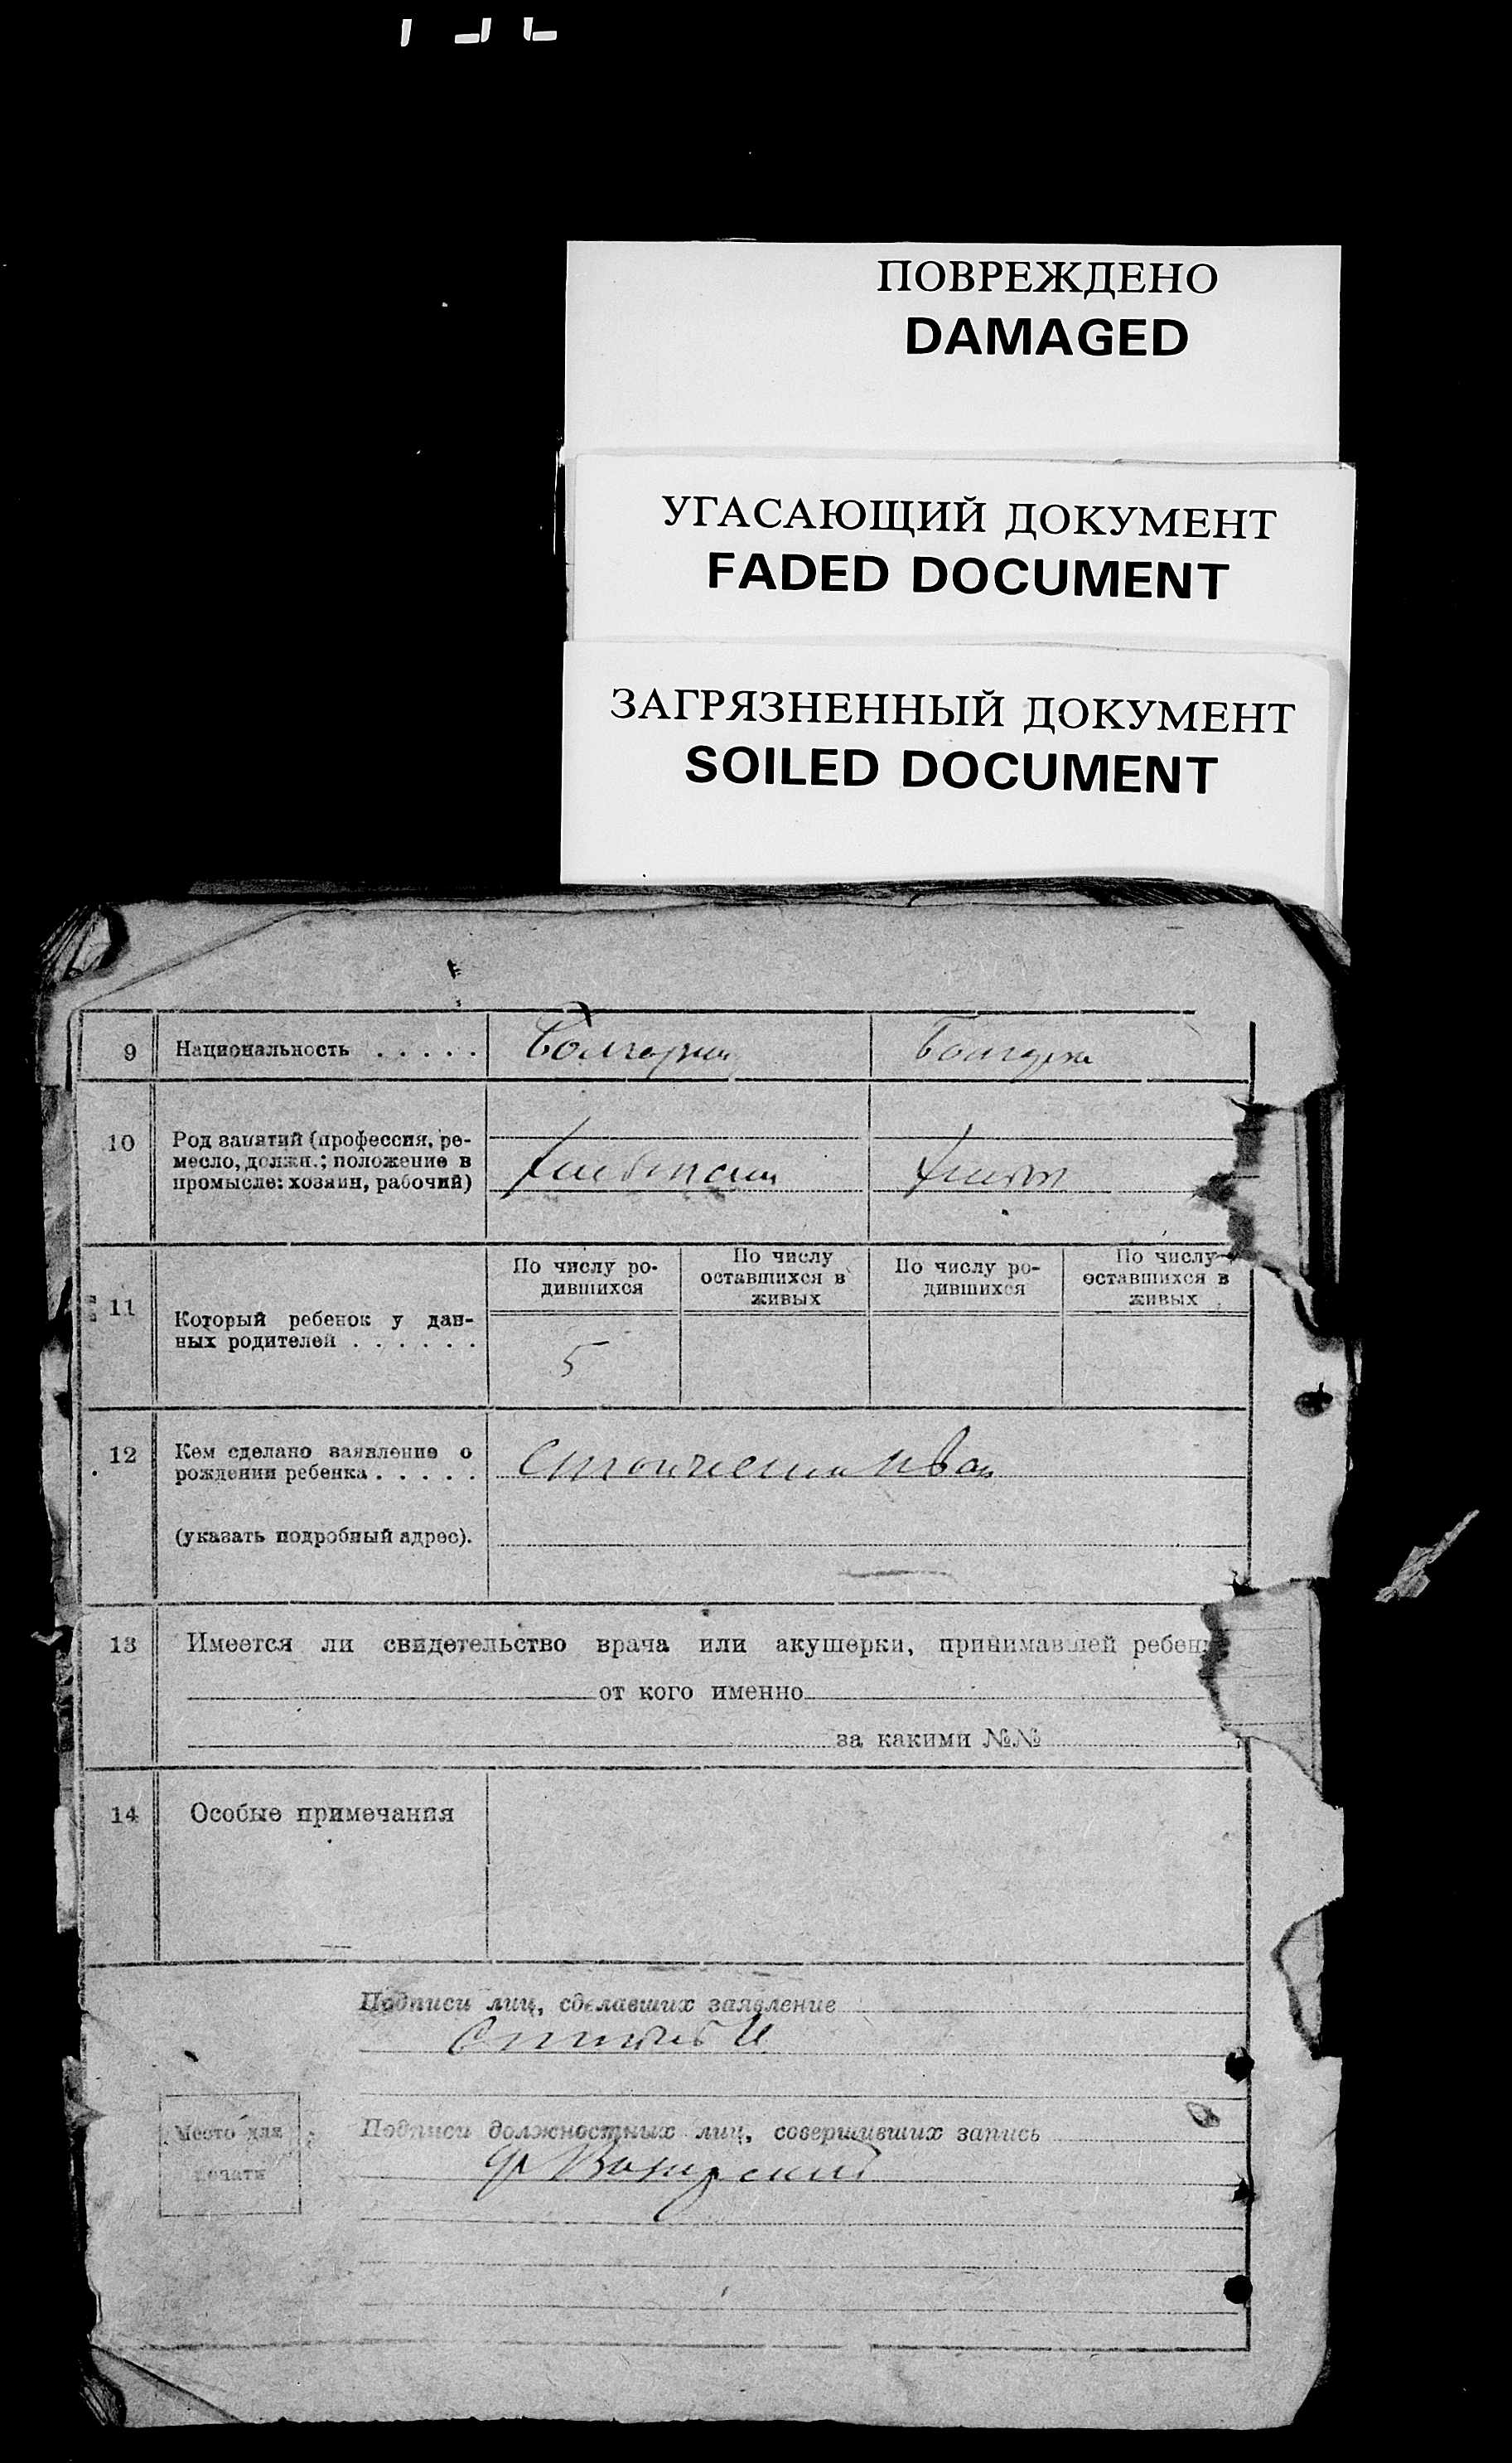 ПОВРЕЖДЕНО
DAMAGED
УГАСАЮЩИЙ ДОКУМЕНТ
FADED DOCUMENT
ЗАГРЯЗНЕННЫЙ ДОКУМЕНТ
SOILED DOCUMENT
9 Национальность . . . . .
10 Род занятий (профессия, ре-
месло, должн.; положение в
промысле: хозяин, рабочий)
По числу ро-
дившихся
По числу
оставшихся в
живых
По числу ро-
дившихся
По числу
оставшихся в
живых
11 Который ребенок у дан-
ных родителей . . . . . .
5
12 Кем сделано заявление о
рождении ребенка . . . . .
Иван
(указать подробный адрес).
13 Имеется ли свидетельство врача или акушерки, принимавшей
от кого именно
за какими №№
14 Особые примечания
Подписи лиц, сделавших заявление
Место для
печати
Подписи должностных лиц, совершивших запись